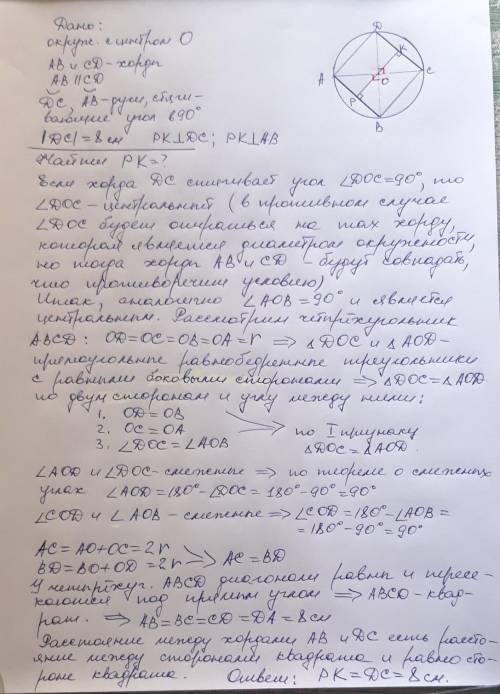 Дано:
окруж. с центром О
АВ и CD - хорды
АВ || CD
DC, AB - дуги, стяги-
вающие угол в 90°
|DC| = 8 см PK⊥DC; PK⊥AB
Найти PK=?
Если хорда DC стягивает угол ∠DOC=90°, то
∠DOC - центральный (в противном случае
∠DOC будет опираться на так хорду,
которая является диаметром окружности,
но тогда хорды АВ и CD будут совпадать,
что противоречит условию)
Итак, аналогично ∠AOB = 90° и является
центральным. Рассмотрим четырёхугольник
ABCD: OD=OC=OB=OA=r ⇒ △DOC и △AOD -
прямоугольные равнобедренные треугольники
с равными боковыми сторонами ⇒ △DOC = △AOD
по двум сторонам и углу между ними:
1. OD = OB
2. OC = OA
3. ∠DOC = ∠AOB
по I признаку
△DOC = △AOD.
∠AOD и ∠DOC - смежные ⇒ по теореме о смежных
углах ∠AOD = 180° - ∠DOC = 180° - 90° = 90°
∠COD и ∠AOB - смежные ⇒ ∠COD = 180° - ∠AOB =
= 180° - 90° = 90°
AC = AO + OC = 2r
BD = BO + OD = 2r
AC = BD
У четырёхуг. ABCD диагонали равны и пересе-
каются под прямым углом ⇒ ABCD - квад-
рат. ⇒ AB = BC = CD = DA = 8 см
Расстояние между хордами АВ и DC есть рассто-
яние между сторонами квадрата и равно сто-
роне квадрата. Ответ: PK = DC = 8 см.
D
K
A
O
C
P
B